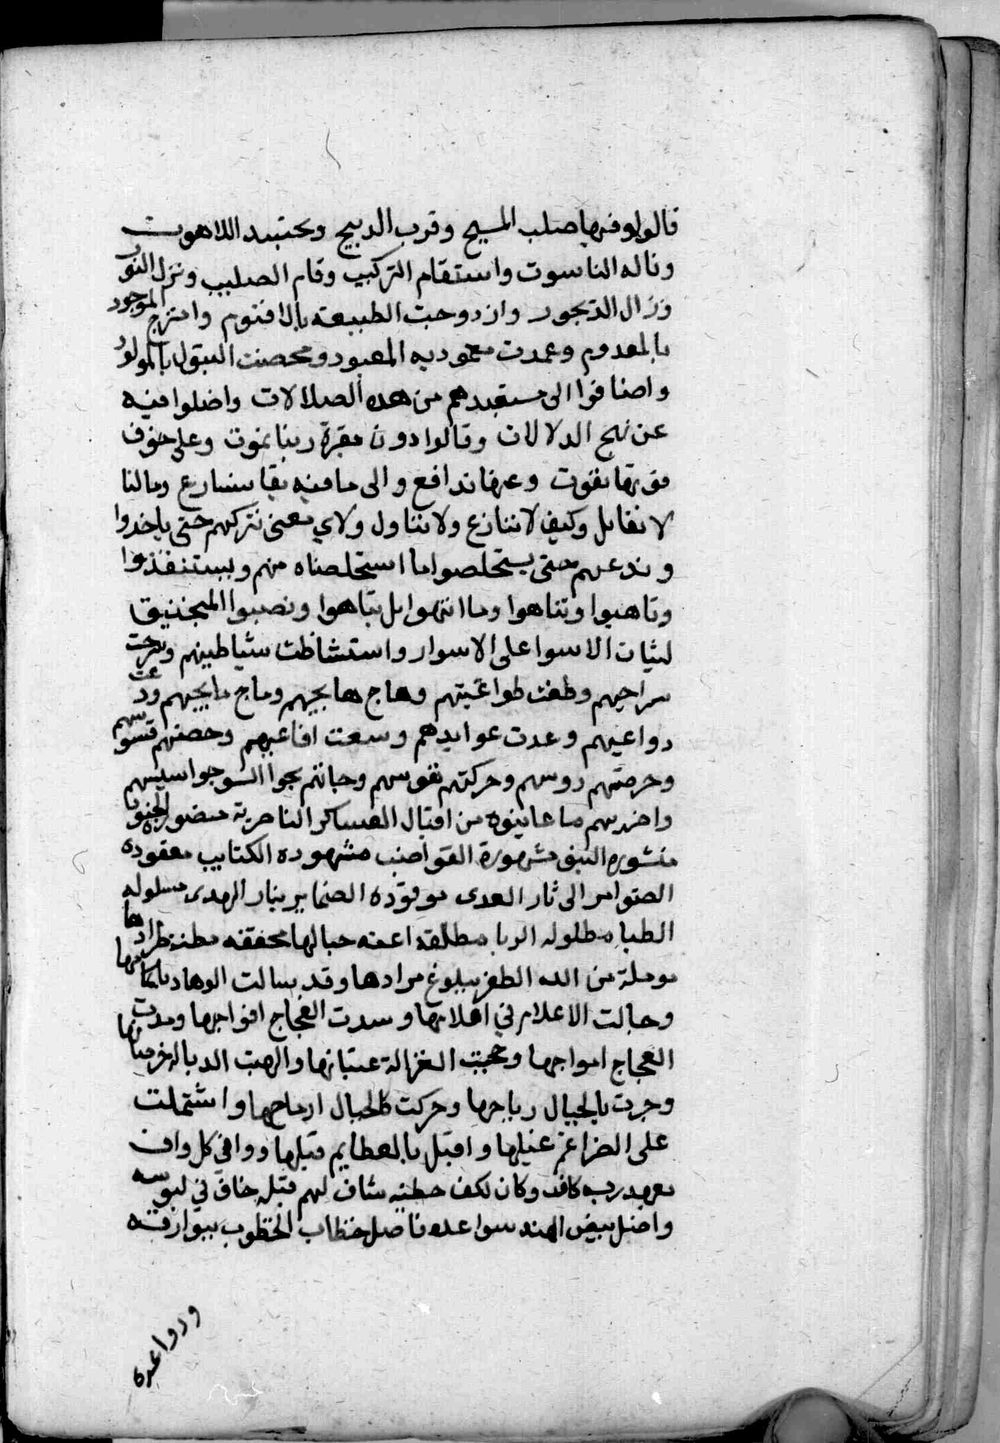 قالوا وفيها صلب المسيح وقرب الدبيح وتجسد اللاهوت
وتاله الناسوت واستقام التركيب وقام الصليب ونزل النور
وزال الديجور وازدوجت الطبيعه بالاقنوم وامتزج الموجود
بالمعدوم وعمدت معموديه المعبود ومحصنت البتول بالمولود
واضافوا الى متعبدهم من هذه الضلالات واضلوا فيه
عن نهج الدلالات وقالوا دون مقبرة ربنا نموت وعلى خوف
فوتها نفوت وعنها ندافع والى ما فيه بقا نسارع ومالنا
لا نقاتل وكيف لا ننازع ولا نتناول ولاي معنى نتركهم حتى ياخدوا
وندعهم حتى يستخلصوا ما استخلصناه منهم ويستنقذوا
وتاهبوا وتناهوا وما انتهوا بل تباهوا ونصبوا المنجنيق
لثيات الاسوا على الاسوار واستشاطت شياطينهم وسرحت
سراحيهم وطغت طواغيتهم وهاج هايجهم وماج مايجهم ودعت
دواعيهم وعدت عواديهم وسعت افاعيهم وحضتهم قسوسهم
وحرضتهم روسهم وحركتهم نفوسهم وجاتهم بجوا السو جواسيسهم
واخبرهم ما عاينوه من اقبال العساكر الناصرية منصورة الجنود
منشوره البنود مشهورة القواضب مشهوده الكتايب معقوده
الضوامر الى ثار العدى موقوده الضماير بنار الهدى مسلوله
الظبا مطلوله الربا مطلقه اعنه جيادها محققه مظنه طرادها
موملة من الله الظفر ببلوغ مرادها وقد سالت الوهاد باكامها
وجالت الاعلام في اعلامها وسدت الفجاج افواجها ومدت
العجاج امواجها وحجبت الغزالة عثيانها والهبت الدبالة خرصانها
وجرت بالجبال رياحها وحركت كالجبال ارماحها واشتملت
على الضراغم غيلها واقبل بالعظايم قبيلها ووافى كل واف
بعهد ربه كاف وكان لكف خطيه شاف لهم قبله خاف في لبوسه
واصل بيض الهند سواعده فاصل خطاب الخطوب ببوارقه
ورواعده